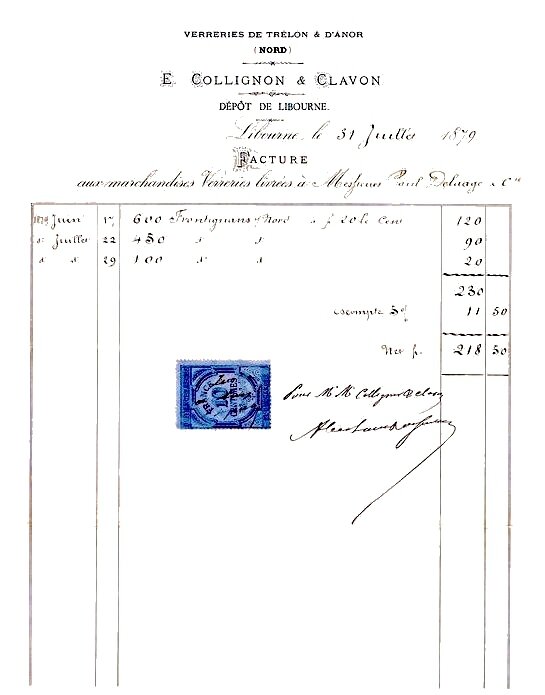 VERRERIES DE TRÉLON & D'ANOR
(NORD)
E. COLLIGNON & CLAVON
DÉPÔT DE LIBOURNE.
Libourne, le 31 Juillet 1879
FACTURE
aux marchandises Verreries livrées à Messieurs Paul Deluage & Cie
1879 Juin 17 600 Frontignans Nord à f 20 le Cent 120
do Juillet 22 450 d d 90
d d 29 100 d d 20
230
escompte 5% 11 50
Net f. 218 50
FRANCE 10 CENTIMES
Pour MM Collignon & Clavon